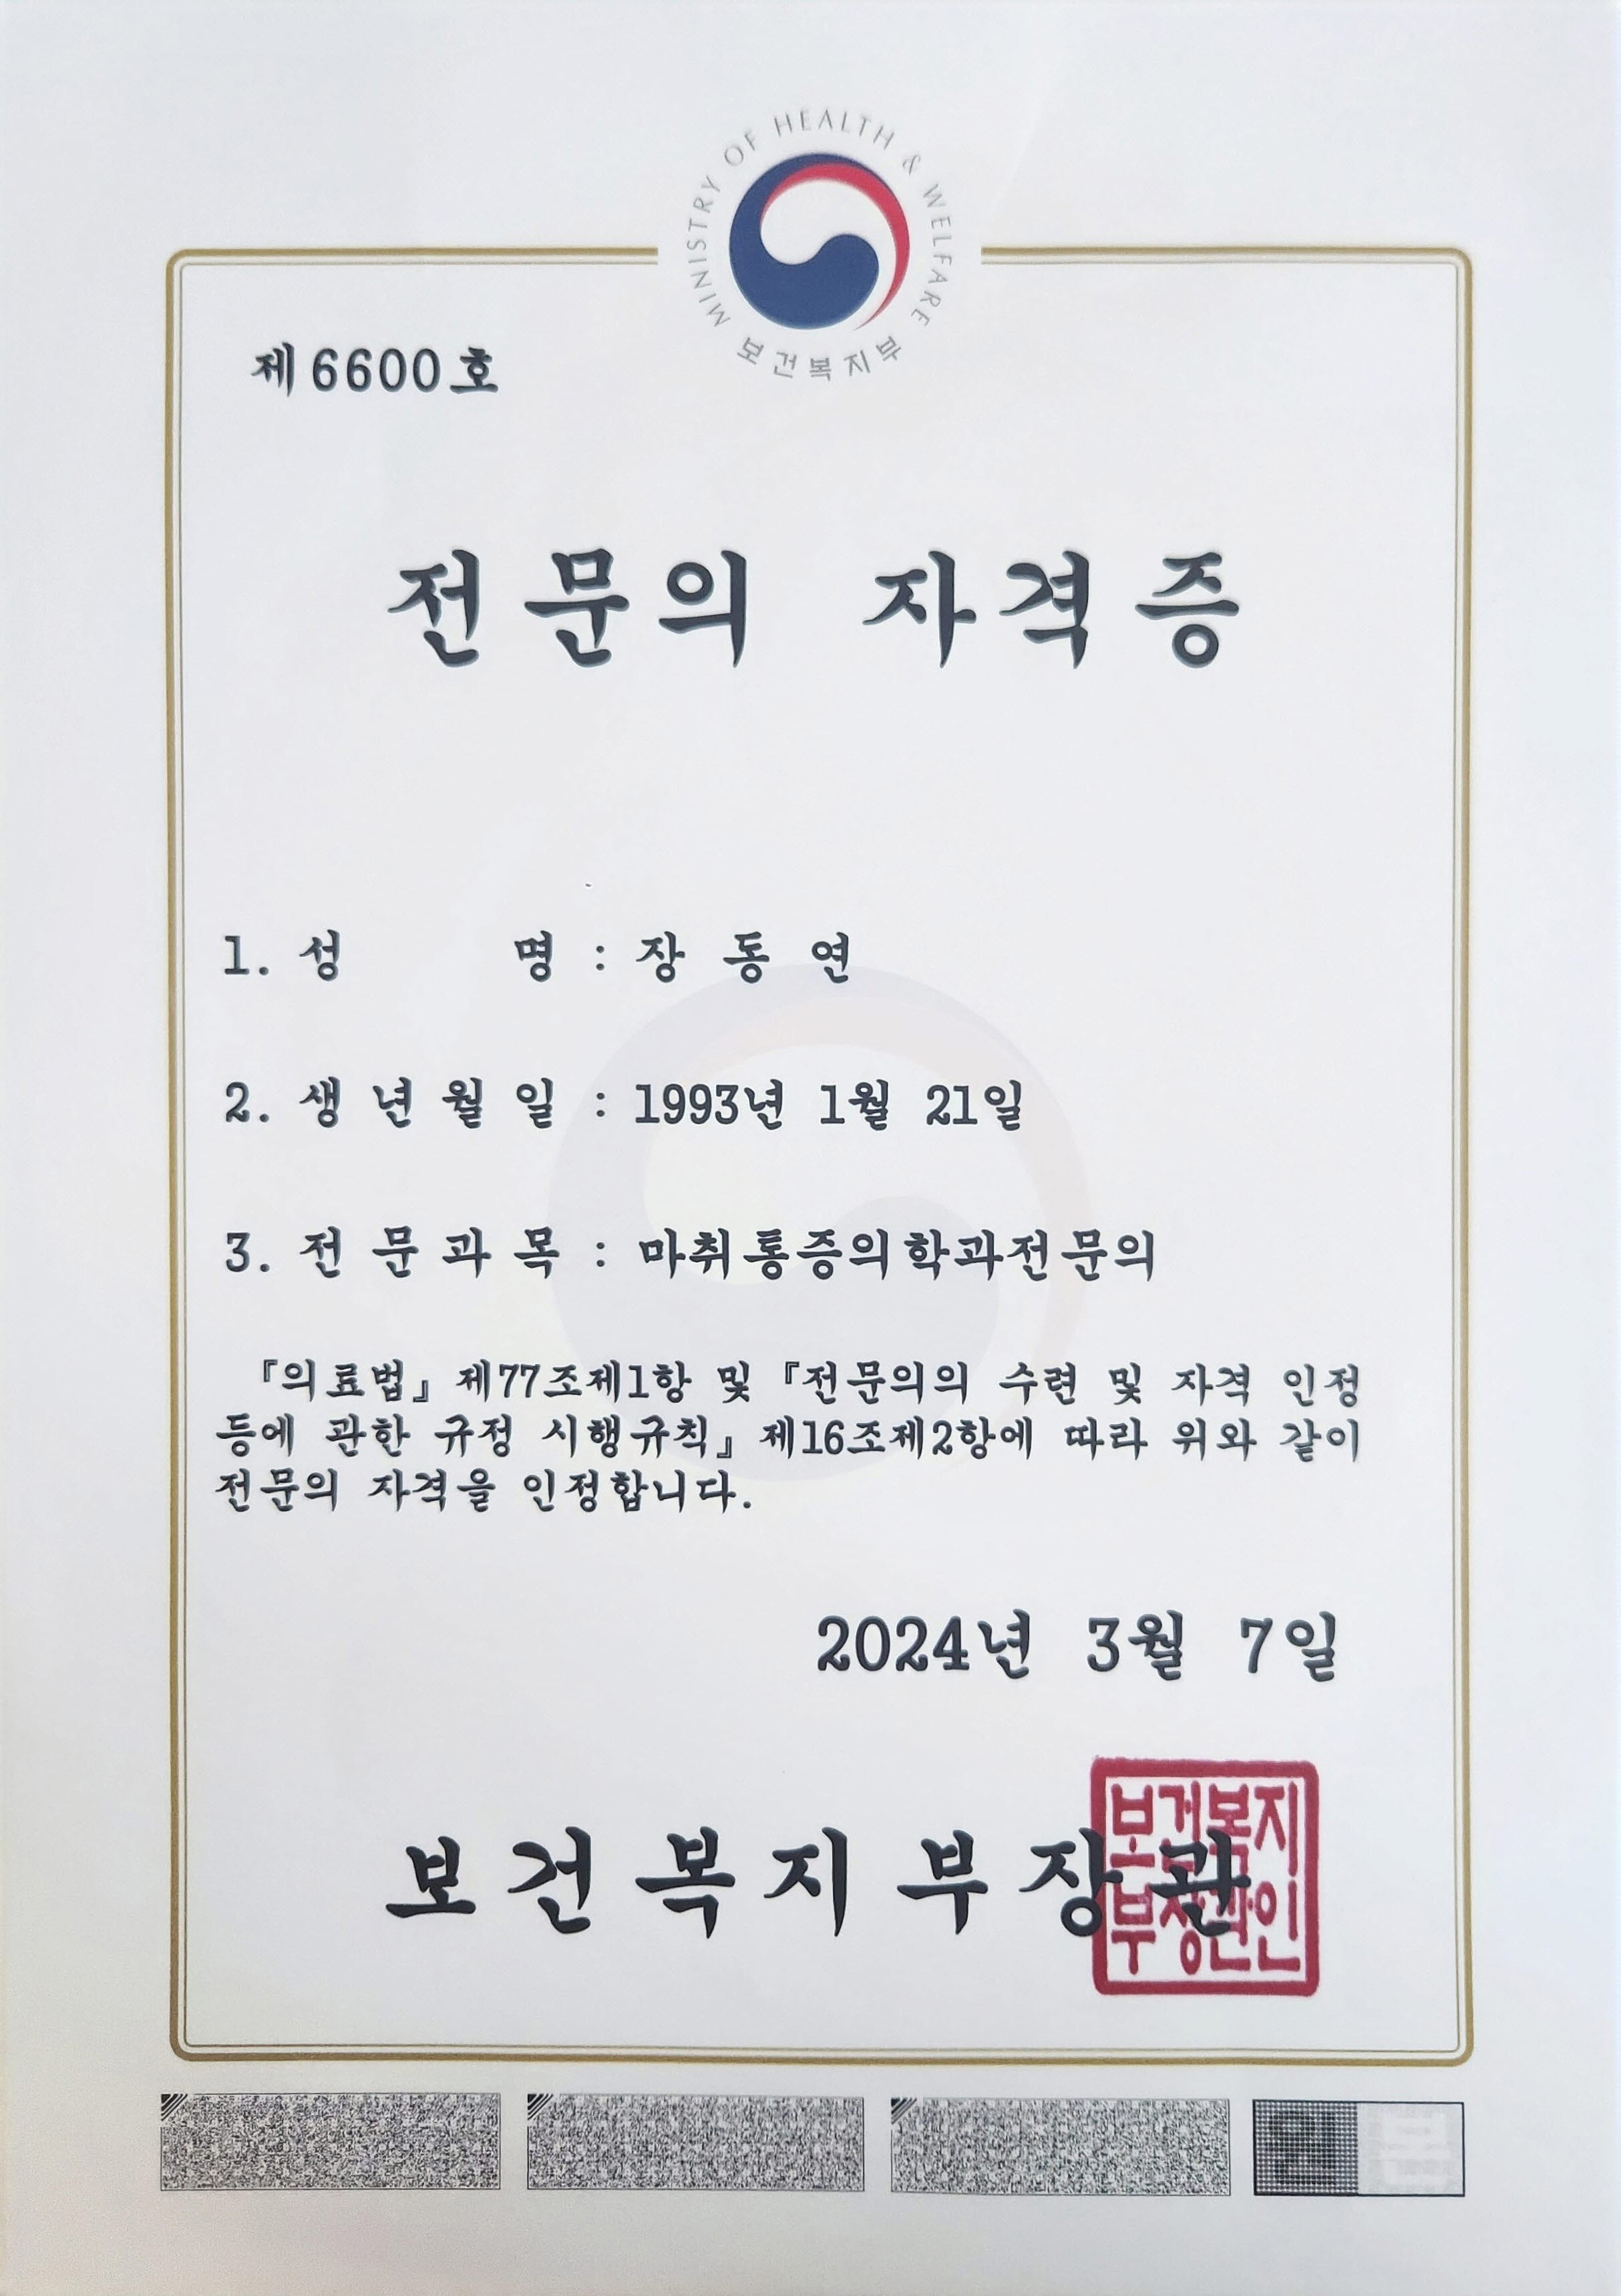 MINISTRY OF HEALTH & WELFARE
보건복지부
제6600호
전문의 자격증
1. 성 명 : 장 동 연
2. 생 년 월 일 : 1993년 1월 21일
3. 전 문 과 목 : 마취통증의학과전문의
『의료법』 제77조제1항 및 『전문의의 수련 및 자격 인정
등에 관한 규정 시행규칙』 제16조제2항에 따라 위와 같이
전문의 자격을 인정합니다.
2024년 3월 7일
보건복지부장관
보건복지
부장관인
원본